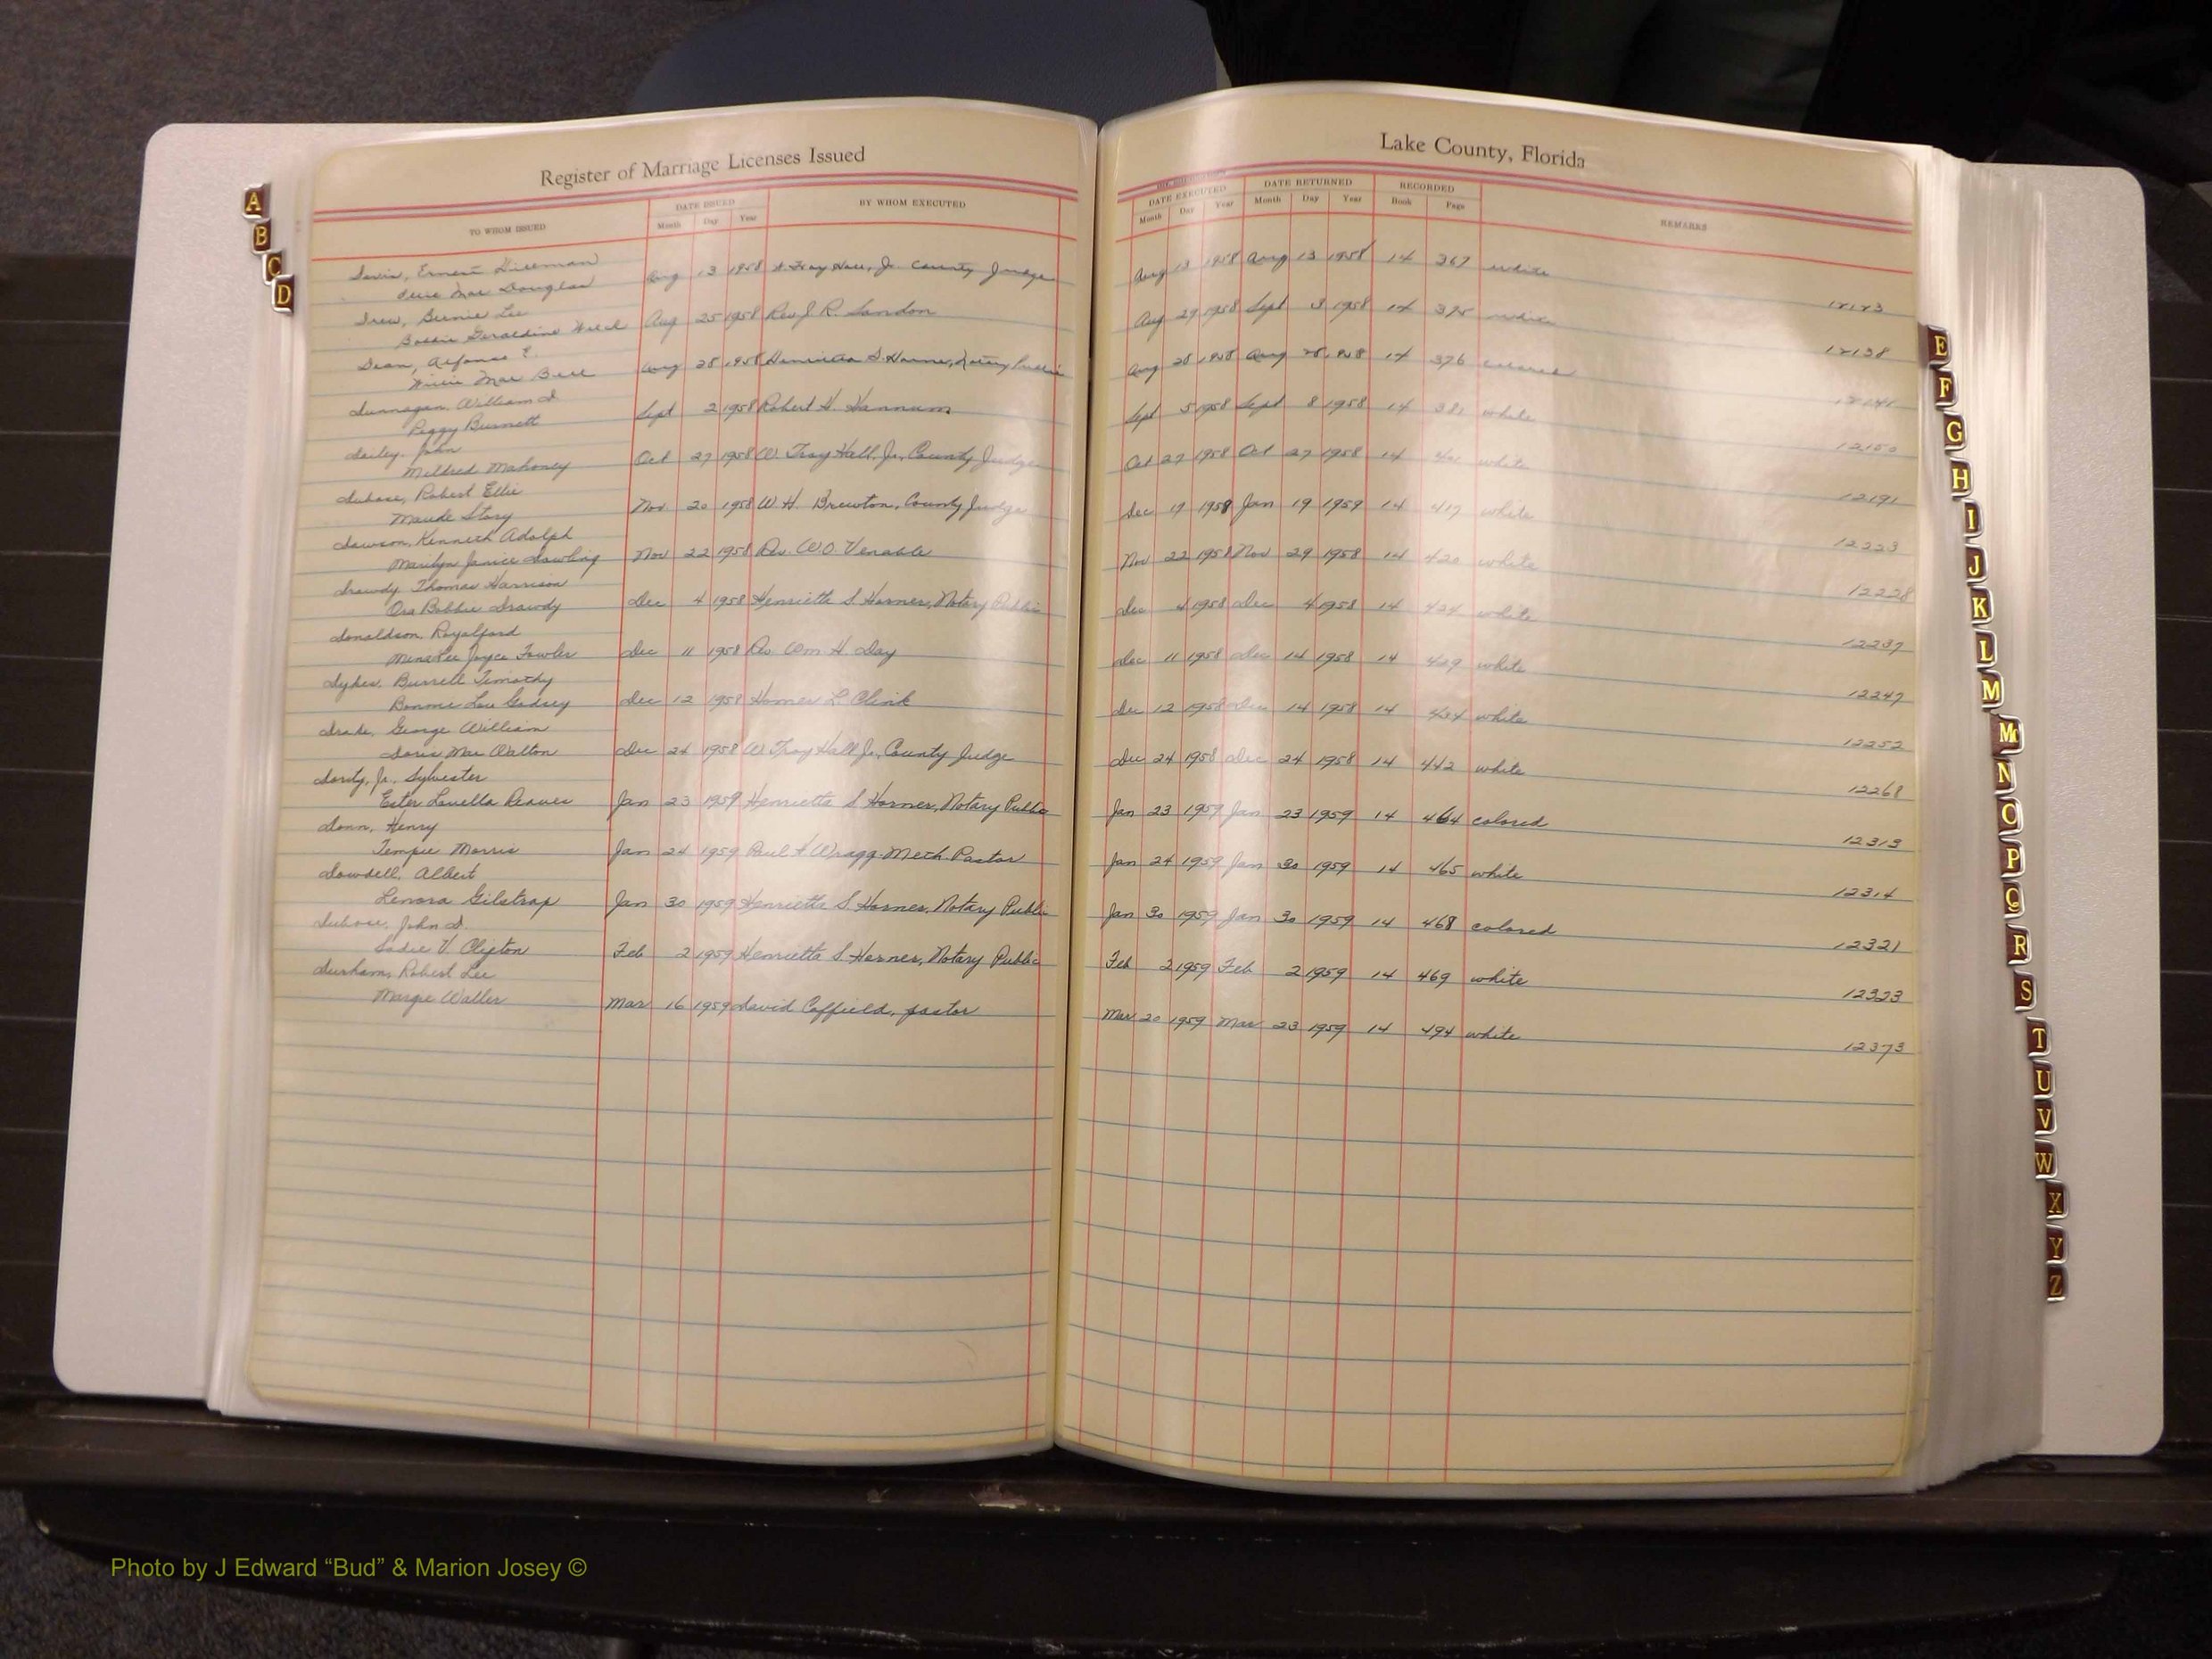 Register of Marriage Licenses Issued
Lake County, Florida
TO WHOM ISSUED
DATE ISSUED
Month Day Year
BY WHOM EXECUTED
DATE EXECUTED
Month Day Year
DATE RETURNED
Month Day Year
RECORDED
Book Page
REMARKS
Davis, Ernest Dillman
Mae Douglas Aug 13 1958 Troy Hall, Jr. County Judge Aug 13 1958 Aug 13 1958 14 367 white 12123
Drew, Bernie Lee
Bobbie Geraldine Welch Aug 25 1958 Rev J R. Landon Aug 29 1958 Sept 3 1958 14 375 white 12138
Dean, Alfonso E.
Willie Mae Bell Aug 28 1958 Henrietta S. Harner, Notary Public Aug 28 1958 Aug 28 1958 14 376 colored
Dunnagan, William D
Peggy Burnett Sept 2 1958 Robert H. Hannum Sept 5 1958 Sept 8 1958 14 381 white 12150
Dailey, John
Mildred Mahoney Oct 27 1958 W. Troy Hall, Jr., County Judge Oct 27 1958 Oct 27 1958 14 white 12191
Dubose, Robert Ellis
Maude Story Nov 20 1958 W. H. Brewton, County Judge Dec 19 1958 Jan 19 1959 14 417 white 12223
Dawson, Kenneth Adolph
Marilyn Janice Dowling Nov 22 1958 Rev. W.O. Venable Nov 22 1958 Nov 29 1958 14 420 white 12228
Drawdy, Thomas Harrison
Ora Bobbie Drawdy Dec 4 1958 Henrietta S. Harner, Notary Public Dec 4 1958 Dec 4 1958 14 424 white 12237
Donaldson, Royalford
Joyce Fowler Dec 11 1958 Rev. Wm H. Day Dec 11 1958 Dec 14 1958 14 429 white 12247
Dykes, Burrell Timothy
Bonnie Lou Godsey Dec 12 1958 Homer L. Clink Dec 12 1958 Dec 14 1958 14 434 white 12252
Drake, George William
Doris Mae Walton Dec 24 1958 W. Troy Hall Jr., County Judge Dec 24 1958 Dec 24 1958 14 442 white 12268
Dority, Jr., Sylvester
Ester Louella Reaves Jan 23 1959 Henrietta S. Harner, Notary Public Jan 23 1959 Jan 23 1959 14 464 colored 12313
Donn, Henry
Tempie Morris Jan 24 1959 Paul F. Wragg-Meth. Pastor Jan 24 1959 Jan 30 1959 14 465 white 12314
Dowdell, Albert
Lenora Gilstrap Jan 30 1959 Henrietta S. Harner, Notary Public Jan 30 1959 Jan 30 1959 14 468 colored 12321
Dubose, John D.
Sadie V. Clifton Feb 2 1959 Henrietta S. Harner, Notary Public Feb 2 1959 Feb 2 1959 14 469 white 12323
Durham, Robert Lee
Margie Waller Mar 16 1959 David Coffield, pastor Mar 20 1959 Mar 23 1959 14 494 white 12373
A
B
C
D
E
F
G
H
I
J
K
L
M
Mc
N
O
P
Q
R
S
T
U
V
W
X
Y
Z
Photo by J Edward “Bud” & Marion Josey ©